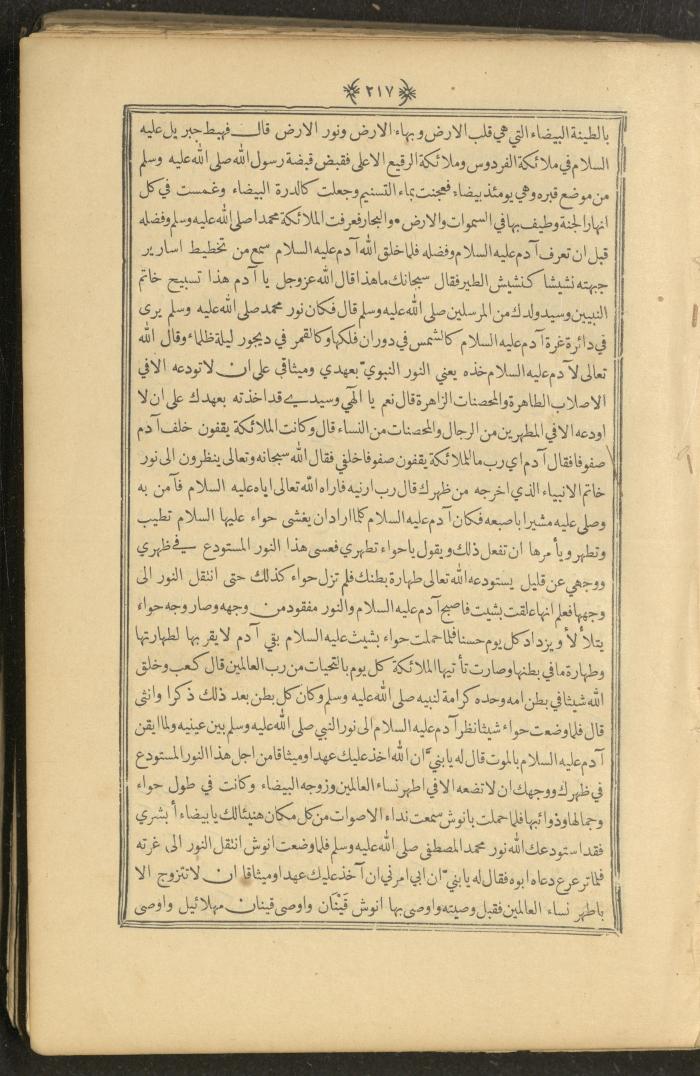 ٢١٧
بالطينة البيضاء التي هي قلب الارض وبهاء الارض ونور الارض قال فهبط جبريل عليه
السلام في ملائكة الفردوس وملائكة الرقيع الاعلى فقبض قبضة رسول الله صلى الله عليه وسلم
من موضع قبره وهي يومئذ بيضاء فعجنت بماء التسنيم وجعلت كالدرة البيضاء وغمست في كل
انهار الجنة وطيف بها في السموات والارض والبحار فعرفت الملائكة محمدا صلى الله عليه وسلم وفضله
قبل ان تعرف آدم عليه السلام وفضله فلما خلق الله آدم عليه السلام سمع من تخطيط اسارير
جبهته نشيشا كنشيش الطير فقال سبحانك ما هذا قال الله عز وجل يا آدم هذا تسبيح خاتم
النبيين وسيد ولدك من المرسلين صلى الله عليه وسلم قال فكان نور محمد صلى الله عليه وسلم يرى
في دائرة غرة آدم عليه السلام كالشمس في دوران فلكها وكالقمر في ديجور ليلة ظلماء وقال الله
تعالى لآدم عليه السلام خذه يعني النور النبويّ بعهدي وميثاقي على ان لا تودعه الا في
الاصلاب الطاهرة والمحصنات الزاهرة قال نعم يا الٓهي وسيدي قد اخذته بعهدك على ان لا
اودعه الا في المطهرين من الرجال والمحصنات من النساء قال وكانت الملائكة يقفون خلف آدم
صفوفا فقال آدم اي رب ما للملائكة يقفون صفوفا خلفي فقال الله سبحانه وتعالى ينظرون الى نور
خاتم الانبياء الذي اخرجه من ظهرك قال رب ارنيه فاراه الله تعالى اياه عليه السلام فآمن به
وصلى عليه مشيرا باصبعه فكان آدم عليه السلام كلما اراد ان يغشى حواء عليها السلام تطيب
وتطهر ويأمرها ان تفعل ذلك ويقول يا حواء تطهري فعسى هذا النور المستودع في ظهري
ووجهي عن قليل يستودعه الله تعالى طهارة بطنك فلم تزل حواء كذلك حتى انتقل النور الى
وجهها فعلم انها علقت بشيت فاصبح آدم عليه السلام والنور مفقود من وجهه وصار وجه حواء
يتلألأ ويزداد كل يوم حسنا فلما حملت حواء بشيث عليه السلام بقي آدم لا يقربها لطهارتها
وطهارة ما في بطنها وصارت تأتيها الملائكة كل يوم بالتحيات من رب العالمين قال كعب وخلق
الله شيثا في بطن امه وحده كرامة لنبيه صلى الله عليه وسلم وكان كل بطن بعد ذلك ذكرا وانثى
قال فلما وضعت حواء شيثا نظر آدم عليه السلام الى نور النبي صلى الله عليه وسلم بين عينيه ولما ايقن
آدم عليه السلام بالموت قال له يا بنيّ ان الله اخذ عليك عهدا وميثاقا من اجل هذا النور المستودع
في ظهرك ووجهك ان لا تضعه الا في اطهر نساء العالمين وزوجه البيضاء وكانت في طول حواء
وجمالها وذوائبها فلما حملت بانوش سمعت نداء الاصوات من كل مكان هنيئا لك يا بيضاء أبشري
فقد استودعك الله نور محمد المصطفى صلى الله عليه وسلم فلما وضعت انوش انتقل النور الى غرته
فلما ترعرع دعاه ابوه فقال له يا بنيّ ان ابي امرني ان آخذ عليك عهدا وميثاقا ان لا تتزوج الا
باطهر نساء العالمين فقبل وصيته واوصى بها انوش قَيْنَان واوصى قينان مهلائيل واوصى